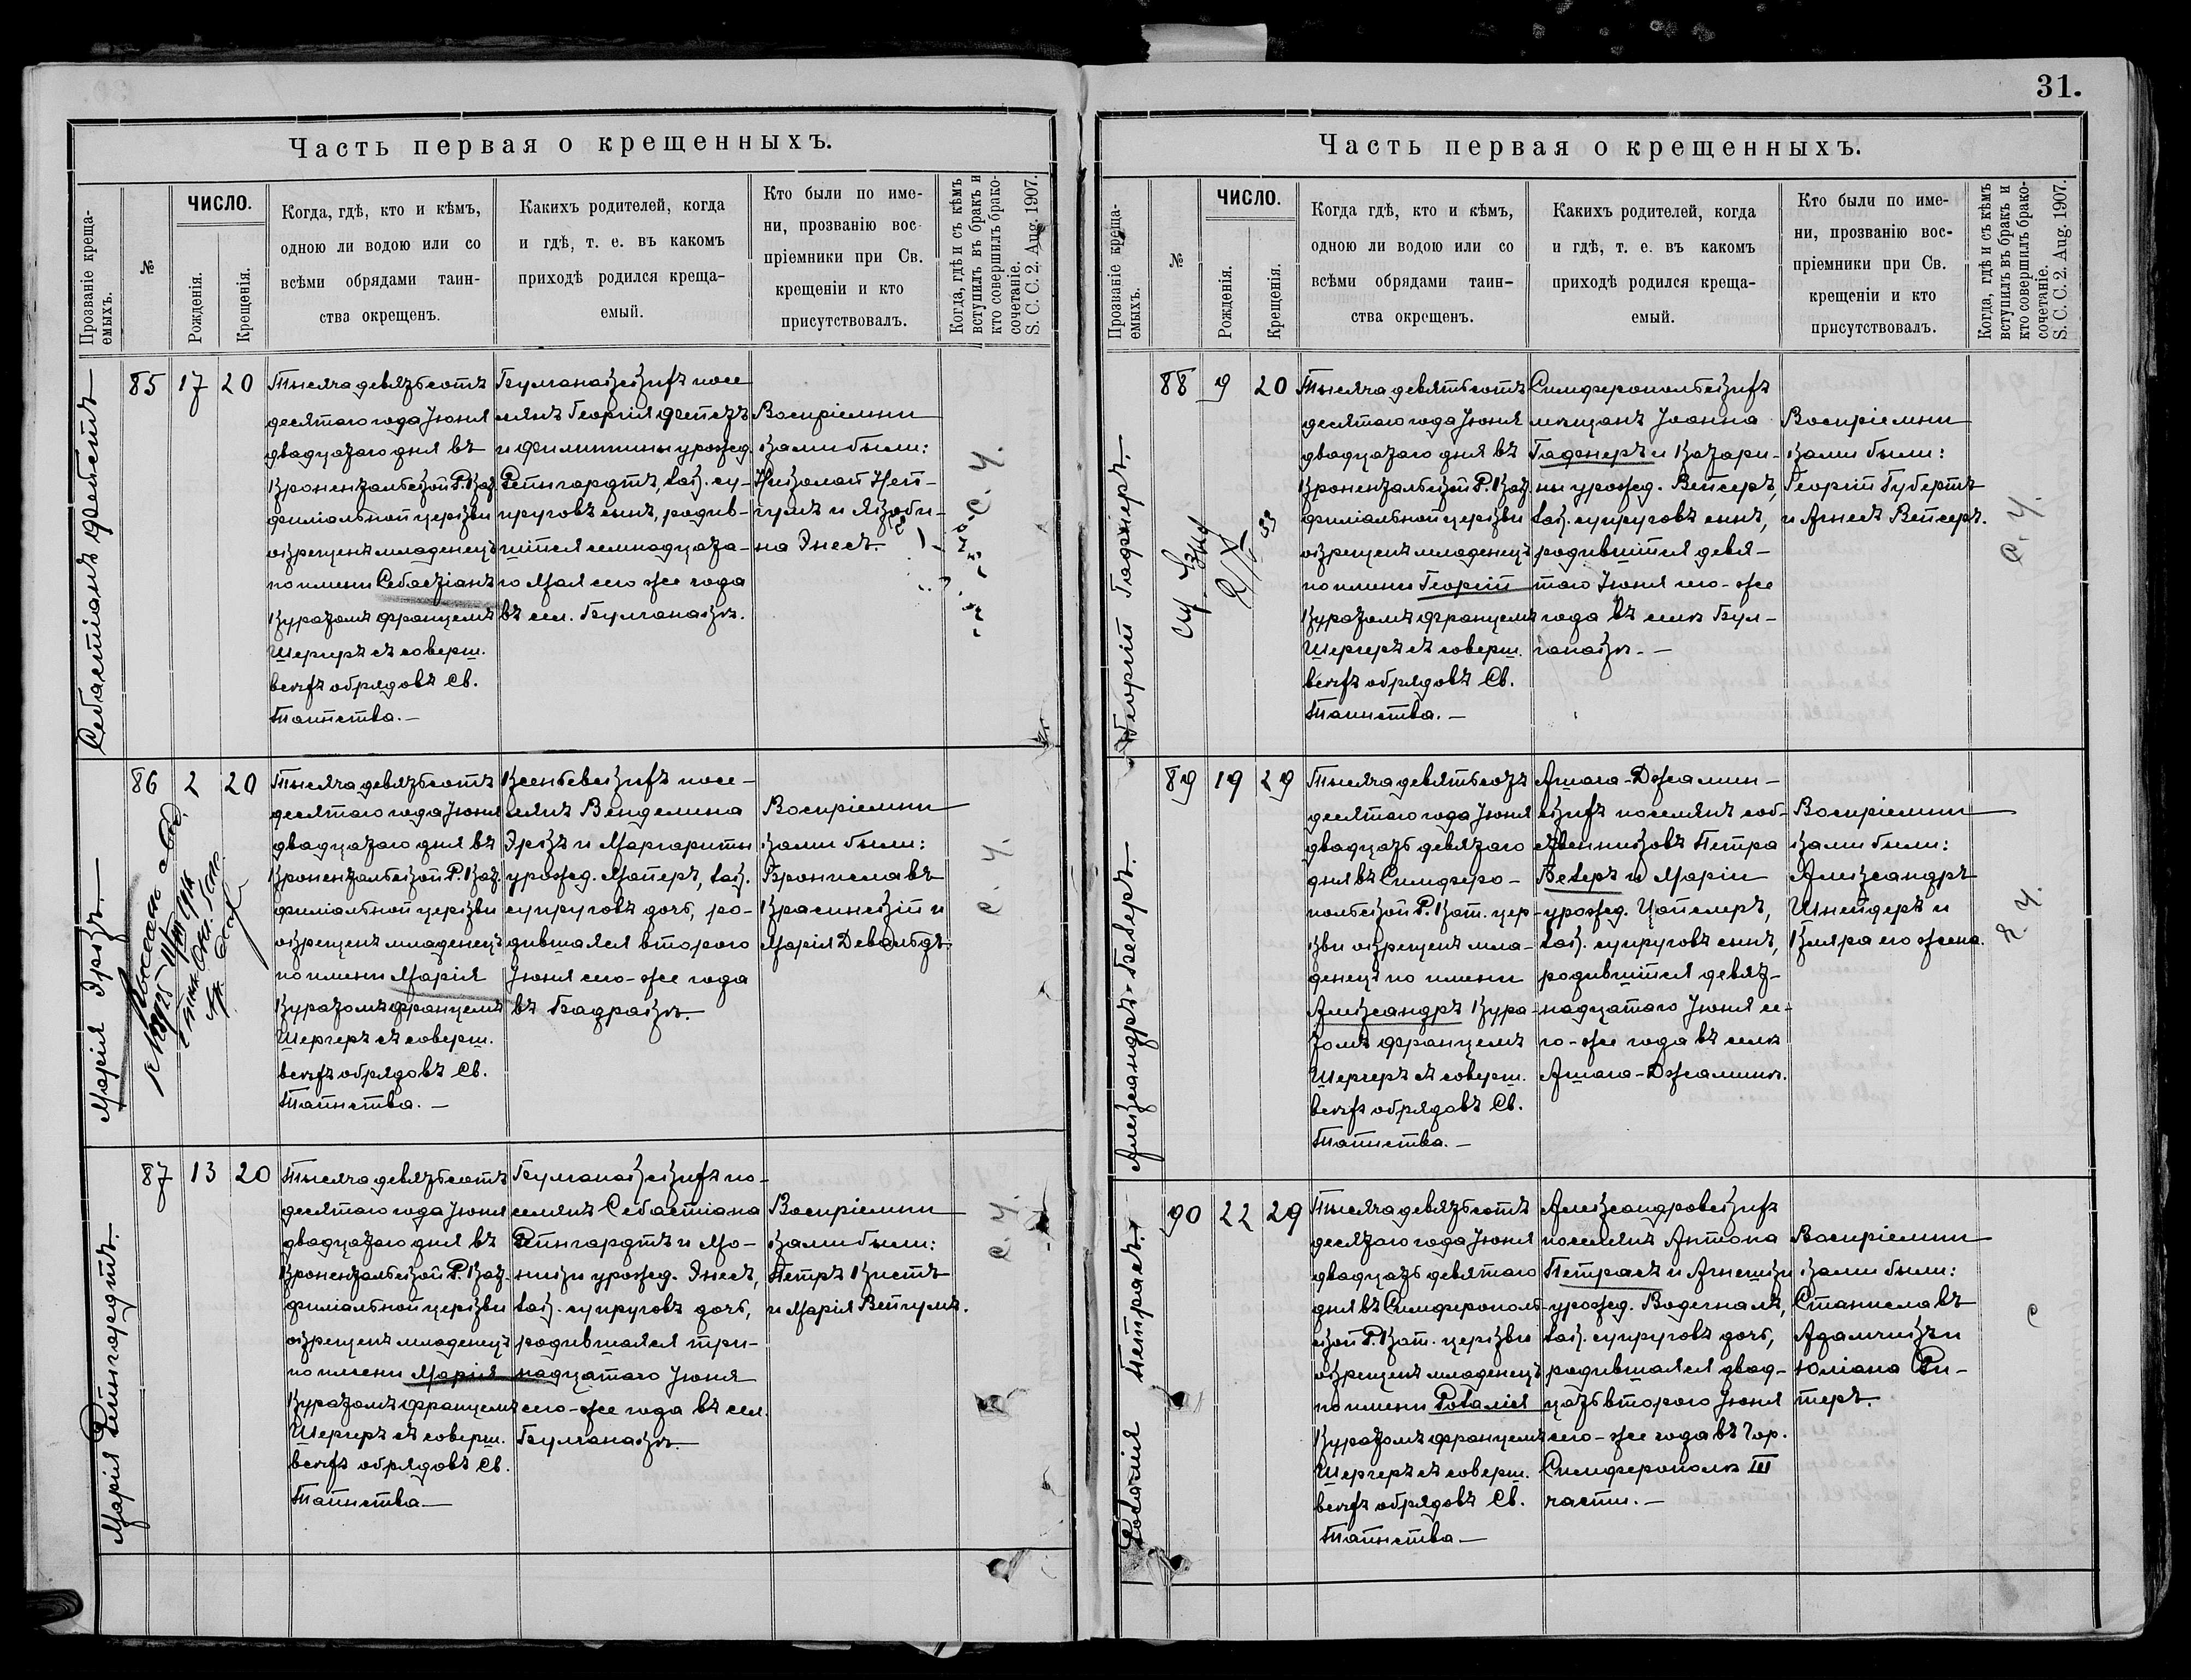 31.
Часть первая о крещенныхъ.
Прозваніе креща-
емыхъ.
№
ЧИСЛО.
Рожденія.
Крещенія.
Когда, гдѣ, кто и кѣмъ,
одною ли водою или со
всѣми обрядами таин-
ства окрещенъ.
Какихъ родителей, когда
и гдѣ, т. е. въ какомъ
приходѣ родился креща-
емый.
Кто были по име-
ни, прозванію вос-
пріемники при Св.
крещеніи и кто
присутствовалъ.
Когда, гдѣ и съ кѣмъ
вступилъ въ бракъ и
кто совершилъ брако-
сочетаніе.
S. C. C. 2. Aug. 1907.
Себастіанъ Фетьстъ
85 17 20
Тысяча девятьсотъ
десятаго года Іюня
двадцатаго дня въ
Кронентальской Р. Кат.
филіальной церкви
окрещенъ младенецъ
по имени Себастіанъ
Куратомъ Францемъ
Шергеръ съ соверш.
всѣхъ обрядовъ Св.
Таинства. —
Булганакскихъ посе
лянъ Георгія Фетезъ
и Филиппины урожд.
Рейнгардтъ, зак. су-
пруговъ сынъ, родив-
шійся семнадцата-
го Мая сего же года
въ сел. Булганакъ.
Воспріемни
ками были:
Николай Ней-
гумъ и Якоби-
на Энесъ.
с. ч.
Марія Эрікъ.
86 2 20
Тысяча девятьсотъ
десятаго года Іюня
двадцатаго дня въ
Кронентальской Р. Кат.
филіальной церкви
окрещенъ младенецъ
по имени Марія
Куратомъ Францемъ
Шергеръ съ соверш.
всѣхъ обрядовъ Св.
Таинства. —
Ксеньевскихъ посе-
лянъ Венделина
Эрікъ и Маргариты
урожд. Майеръ, зак.
супруговъ дочь, ро-
дившаяся второго
Іюня сего-же года
въ Бадракъ.
Воспріемни
ками были:
Брониславъ
Красинскій и
Марія Девальдъ.
с. ч.
Марія Рейнгардтъ.
87 13 20
Тысяча девятьсотъ
десятаго года Іюня
двадцатаго дня въ
Кронентальской Р. Кат.
филіальной церкви
окрещенъ младенецъ
по имени Марія
Куратомъ Францемъ
Шергеръ съ соверш.
всѣхъ обрядовъ Св.
Таинства —
Булганакскихъ по-
селянъ Себастіана
Рейнгардтъ и Мо-
ники урожд. Энесъ,
зак. супруговъ дочь,
родившаяся три-
надцатаго Іюня
сего-же года въ сел.
Булганакъ.
Воспріемни
ками были:
Петръ Кистъ
и Марія Вейгумъ.
с. ч.
Часть первая о крещенныхъ.
Прозваніе креща-
емыхъ.
№
ЧИСЛО.
Рожденія.
Крещенія.
Когда гдѣ, кто и кѣмъ,
одною ли водою или со
всѣми обрядами таин-
ства окрещенъ.
Какихъ родителей, когда
и гдѣ, т. е. въ какомъ
приходѣ родился креща-
емый.
Кто были по име-
ни, прозванію вос-
пріемники при Св.
крещеніи и кто
присутствовалъ.
Когда, гдѣ и съ кѣмъ
вступилъ въ бракъ и
кто совершилъ брако-
сочетаніе.
S. C. C. 2. Aug. 1907.
Георгій Гаджеръ.
88 9 20
Тысяча девятьсотъ
десятаго года Іюня
двадцатаго дня въ
Кронентальской Р. Кат.
филіальной церкви
окрещенъ младенецъ
по имени Георгій
Куратомъ Францемъ
Шергеръ съ соверш.
всѣхъ обрядовъ Св.
Таинства. —
Симферопольскихъ
мѣщанъ Іоанна
Гаднеръ и Катари-
ны урожд. Вейсеръ,
зак. супруговъ сынъ,
родившійся девя-
таго Іюня сего-же
года въ селѣ Бул-
ганакъ. —
Воспріемни
ками были:
Георгій Губертъ
и Агнесъ Вейсеръ.
с. ч.
Александръ Беберъ.
89 19 29
Тысяча девятьсотъ
десятаго года Іюня
двадцать девятаго
дня въ Симферо-
польской Р. Кат. цер-
кви окрещенъ мла-
денецъ по имени
Александръ Кура-
томъ Францемъ
Шергеръ съ соверш.
всѣхъ обрядовъ Св.
Таинства. —
Ашага-Джамин-
скихъ поселянъ соб-
ственниковъ Петра
Беберъ и Маріи
урожд. Цайслеръ,
зак. супруговъ сынъ,
родившійся девят-
надцатаго Іюня се-
го-же года въ селѣ
Ашага-Джаминъ.
Воспріемни
ками были:
Александръ
Шнейдеръ и
Клара его жена.
2 ч.
Розалія Петрасъ.
90 22 29
Тысяча девятьсотъ
десятаго года Іюня
двадцать девятаго
дня въ Симферополь-
ской Р. Кат. церкви
окрещенъ младенецъ
по имени Розалія
Куратомъ Францемъ
Шергеръ съ соверш.
всѣхъ обрядовъ Св.
Таинства —
Александровскихъ
поселянъ Антона
Петрасъ и Агнешки
урожд. Водегналъ,
зак. супруговъ дочь,
родившаяся двад-
цать второго Іюня
сего-же года въ гор.
Симферополѣ III
части. —
Воспріемни
ками были:
Станиславъ
Адамчикъ и
Юліана Ри-
теръ.
с